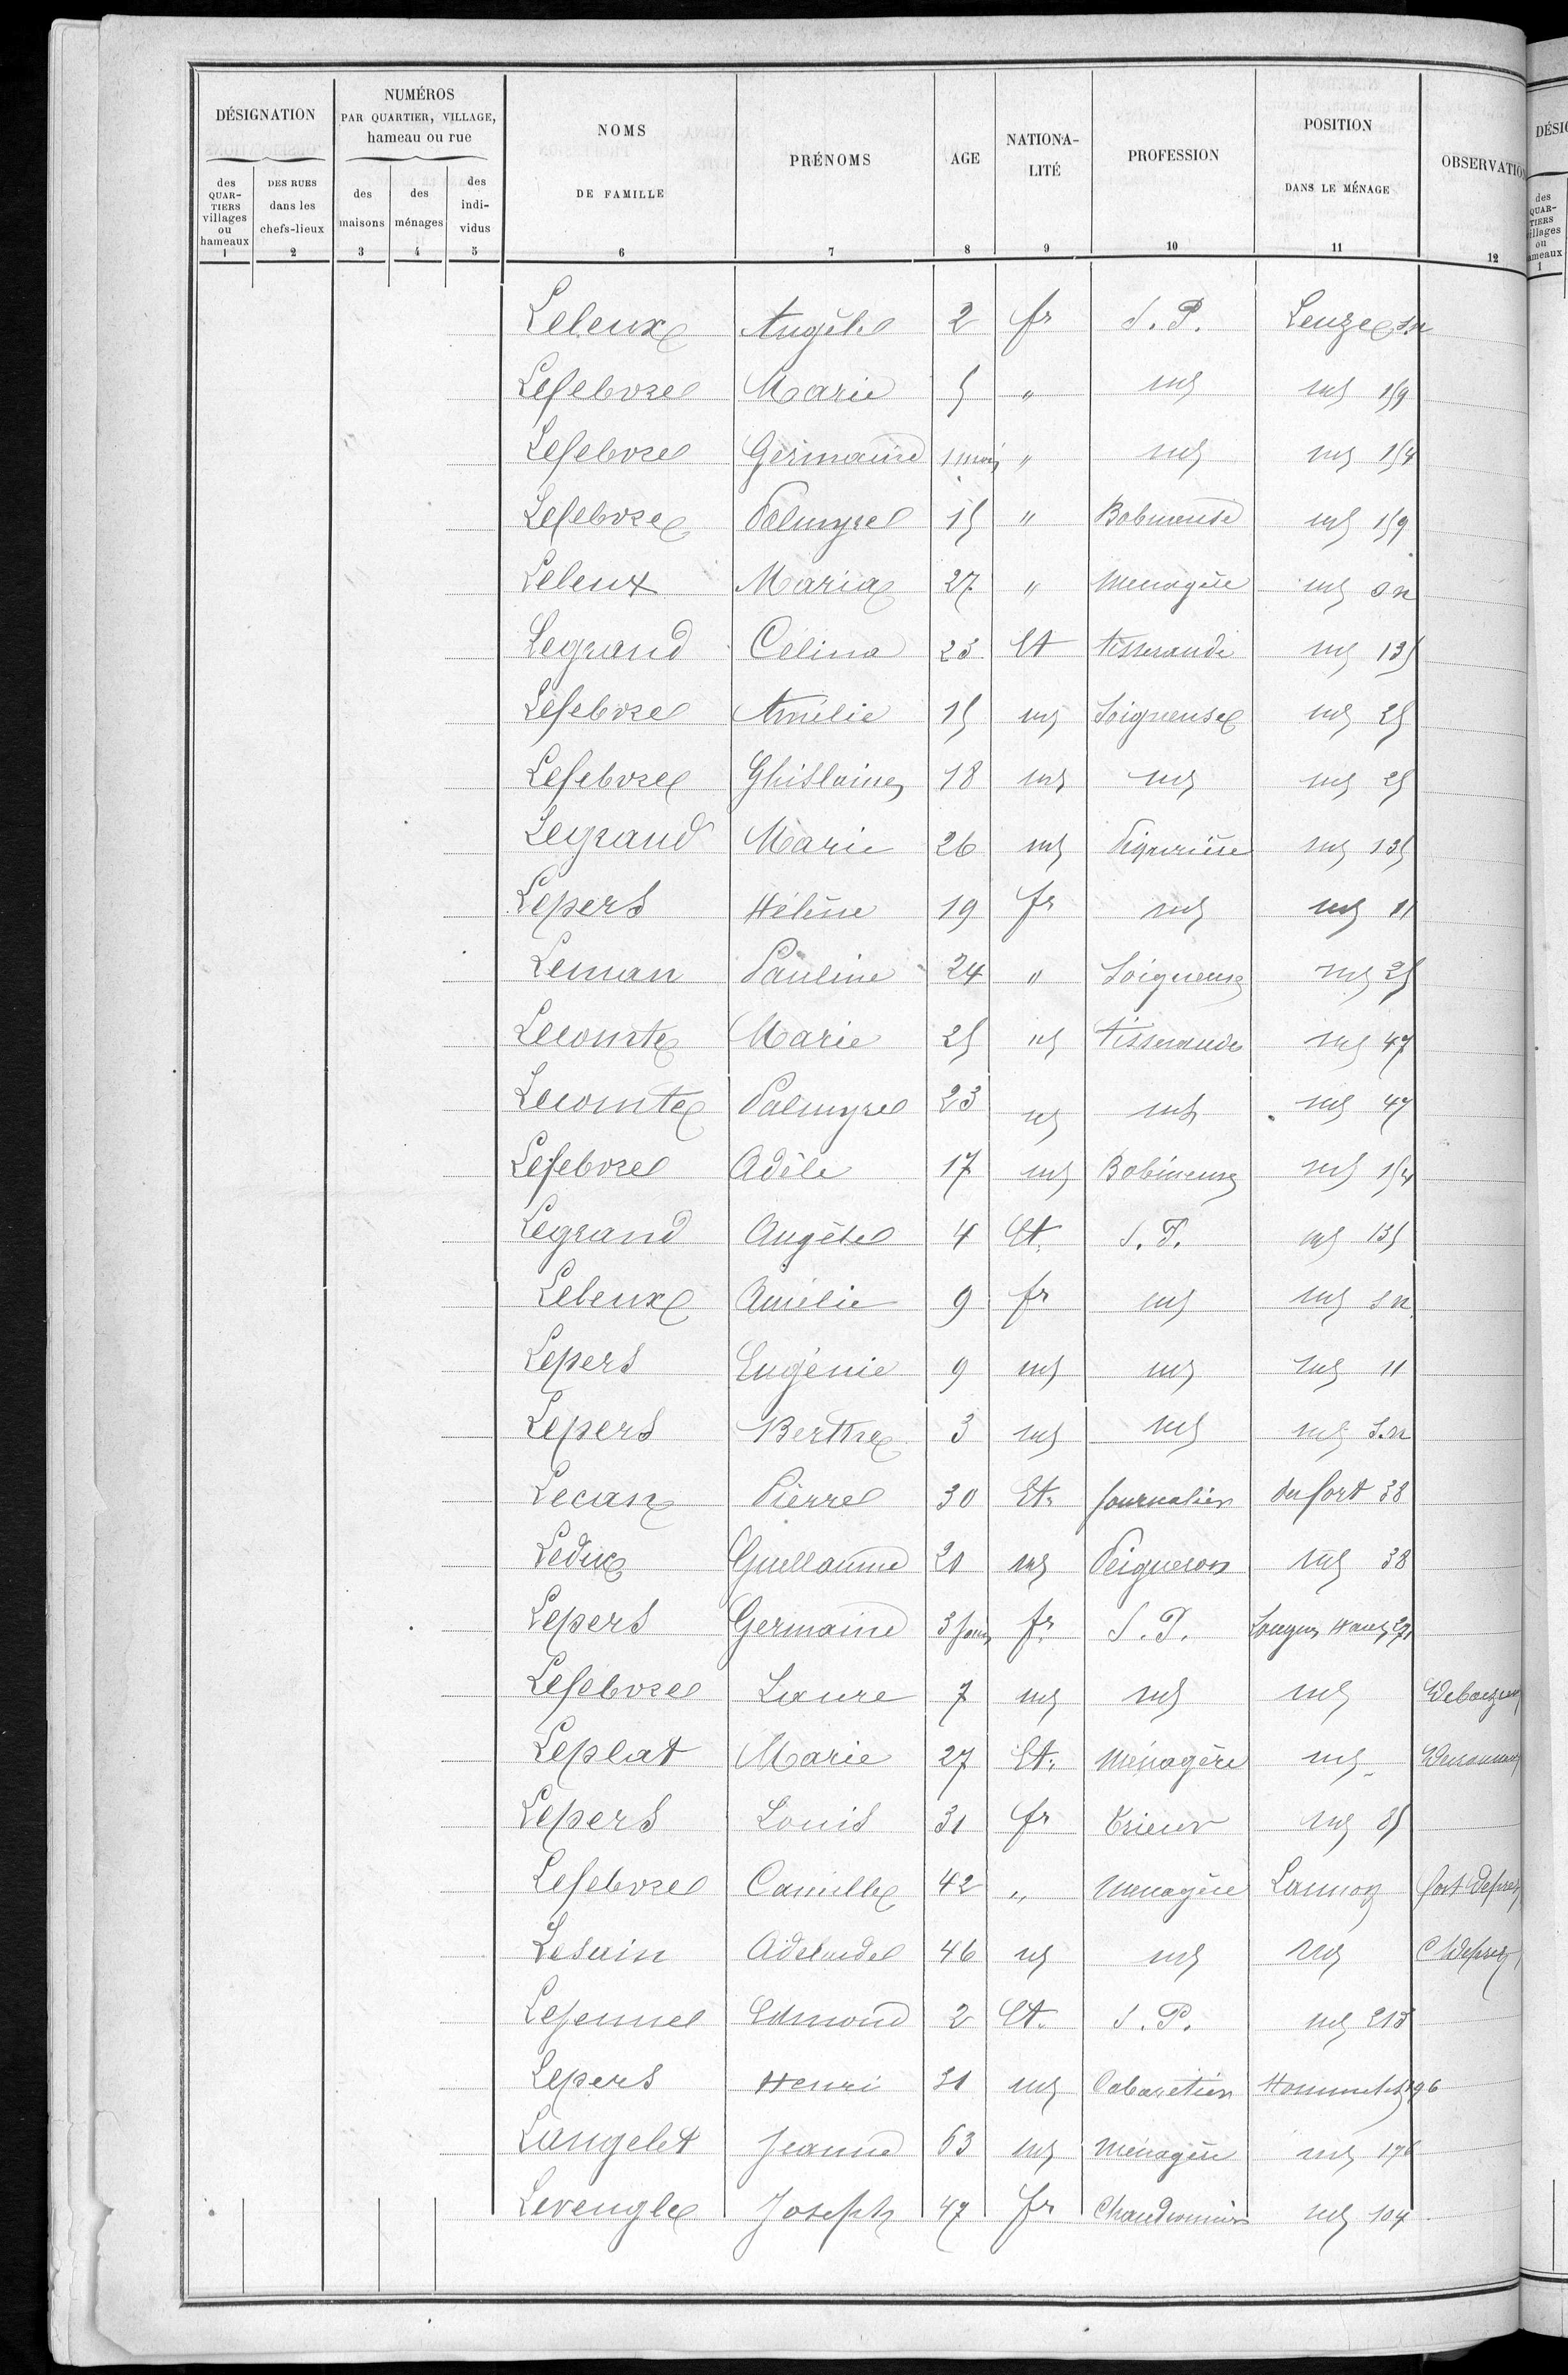 DÉSIGNATION NUMÉROS PAR QUARTIER, VILLAGE, hameau ou rue NOMS DE FAMILLE PRÉNOMS AGE NATIONALITÉ PROFESSION POSITION DANS LE MÉNAGE OBSERVATION
des QUARTIERS villages ou hameaux DES RUES dans les chefs-lieux des maisons des ménages des individus
1 2 3 4 5 6 7 8 9 10 11 12
Leleux Angèle 2 fr S.P. Leuze sn
Lefebvre Marie 5 " id id 159
Lefebvre Germaine 1 mois " id id 154
Lefebvre Palmyre 15 " Bobineuse id 159
Leleux Maria 27 " Menagère id sn
Legrand Celina 23 Et tisserande id 135
Lefebvre Amélie 15 id Soigneuse id 25
Lefebvre Ghislaine 18 id id id 25
Legrand Marie 26 id Piqurière id 135
Lepers Hélène 19 fr id id 11
Leman Pauline 24 " Soigneuse id 25
Lecomte Marie 25 id tisserande id 47
Lecomte Palmyre 23 id id id 47
Lefebvre Adèle 17 id Bobineuse id 154
Legrand Angèle 4 Et. S.P. id 135
Leleux Amélie 9 fr id id sn
Lepers Eugénie 9 id id id 11
Lepers Berthe 3 id id id S.n
Pierre 30 Et. journalier du fort 38
Leduc Guillaume 21 id Peigneron id 38
Lepers Germaine 3 jours fr. S.P. Longues Haies 271
Lefebvre Laure 7 id id id
Leplat Marie 27 Et. Ménagère id
Lepers Louis 31 fr trieur id 85
Lefebvre Camille 42 " Menagère Lannoy fort Desprez
Lesain Adelaide 46 id id id C Desprez
Edmond 2 Et. S.P. id 213
Lepers Henri 31 id Cabaretier Hommelet 196
Langelet Jeanne 63 id Ménagère id 176
Leveugle Joseph 47 fr Chaudronnier id 104